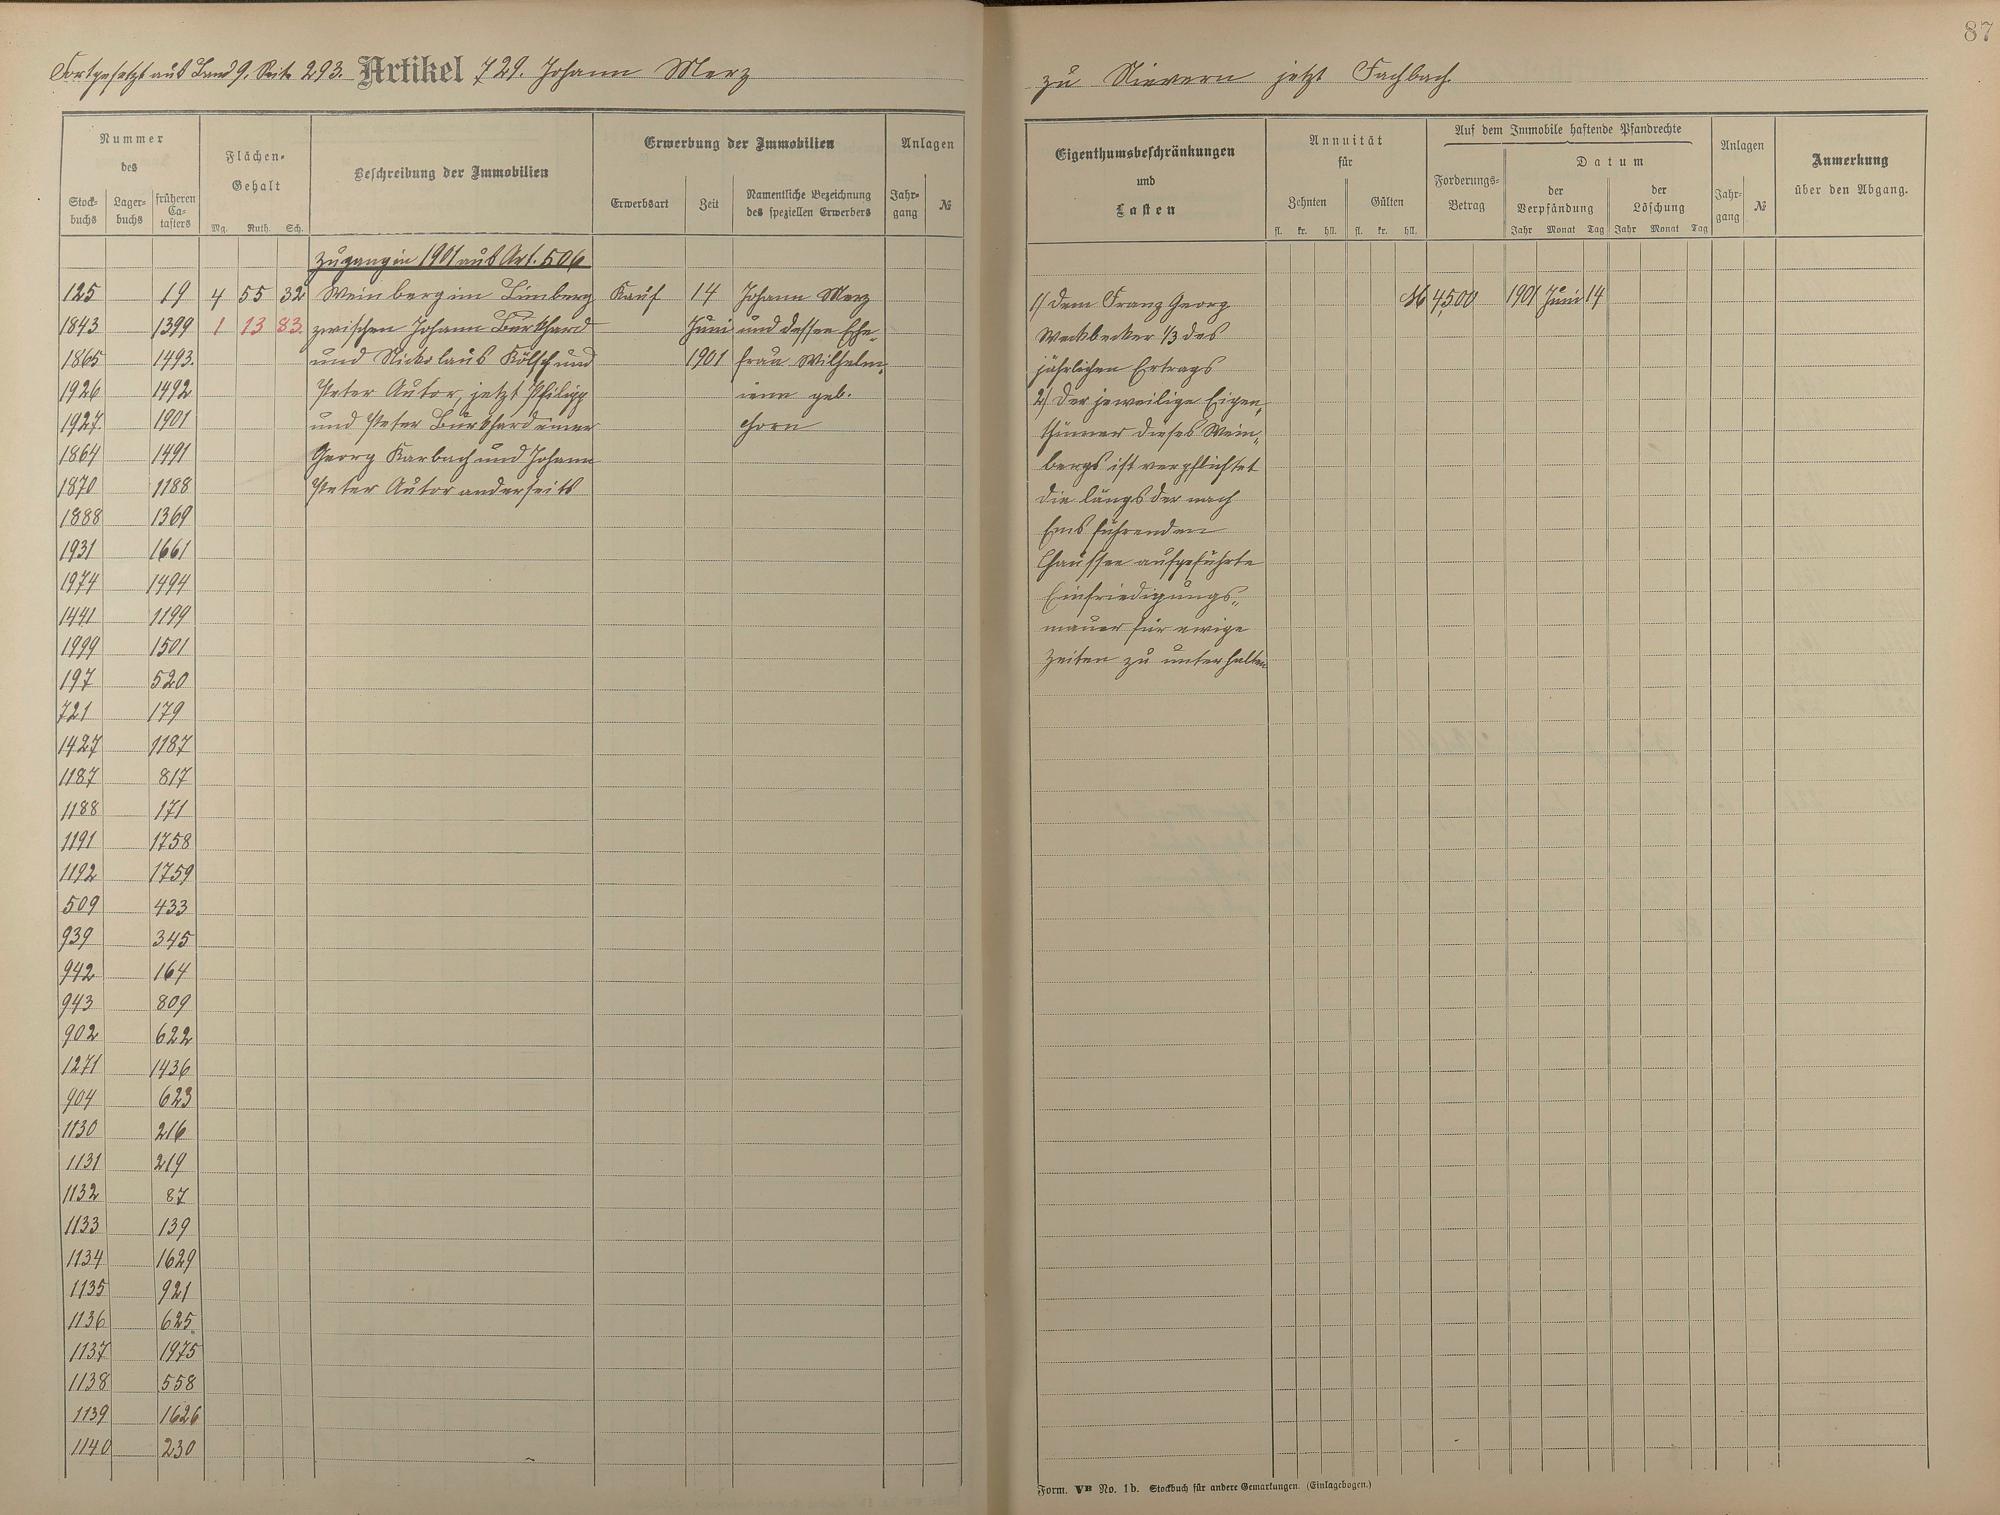 87
Fortgesetzt aus Band 9, Seite 293. Artikel 729. Johann Merz
zu Nievern jetzt Fachbach.
Nummer
des
Stock-
buchs
Lager-
buchs
früheren
Ca-
tasters
Flächen-
Gehalt
Mg. Ruth. Sch.
Beschreibung der Immobilien
Erwerbung der Immobilien
Erwerbsart
Zeit
Namentliche Bezeichnung
des speziellen Erwerbers
Anlagen
Jahr-
gang
№
Zugang in 1901 aus Art. 506
125 19 4 55 32 Weinberg im Limberg Kauf 14 Johann Merz
1843 1399 1 13 83. zwischen Johann Burkhard Juni und dessen Ehe-
1865 1493. und Nickolaus Kölsch und 1901 frau Wilhelm,
1926 1492 Peter Autor, jetzt Philipp iene geb.
1927. 1901 und Peter Burkhard einer
1864 1491 Georg Karbach und Johann
1870 1188 Peter Autor anderseits
1888 1369
1931 1661
1974 1494
1441 1199
1999 1501
197 520
721 179
1427 1187
1187 817
1188 171
1191 1758
1192 1759
509 433
939 345
942 164
943 809
902 622
1271 1436
904 623
1130 216
1131 219
1132 87
1133 139
1134 1629
1135 921
1136 625
1137 1975
1138 558
1139 1626
1140 230
Eigenthumsbeschränkungen
und
Lasten
Annuität
für
Zehnten
fl. kr. hll.
Gülten
fl. kr. hll.
Auf dem Immobile haftende Pfandrechte
Forderungs-
Betrag
Datum
der
Verpfändung
Jahr Monat Tag
der
Löschung
Jahr Monat Tag
Anlagen
Jahr-
gang
№
Anmerkung
über den Abgang.
1/ dem Franz Georg M 4500 1901 Juni 14
Weckbecker 1/3 des
jährlichen Ertrags
2/ Der jeweilige Eigen,
thümer dieses Wein,,
bergs ist verpflichtet
die längs der nach
Ems führenden
Chaussee aufgeführte
Einfriedigungs,,
mauer für ewige
Zeiten zu unterhalten
Form. VB No. 1b. Stockbuch für andere Gemarkungen. (Einlagebogen.)